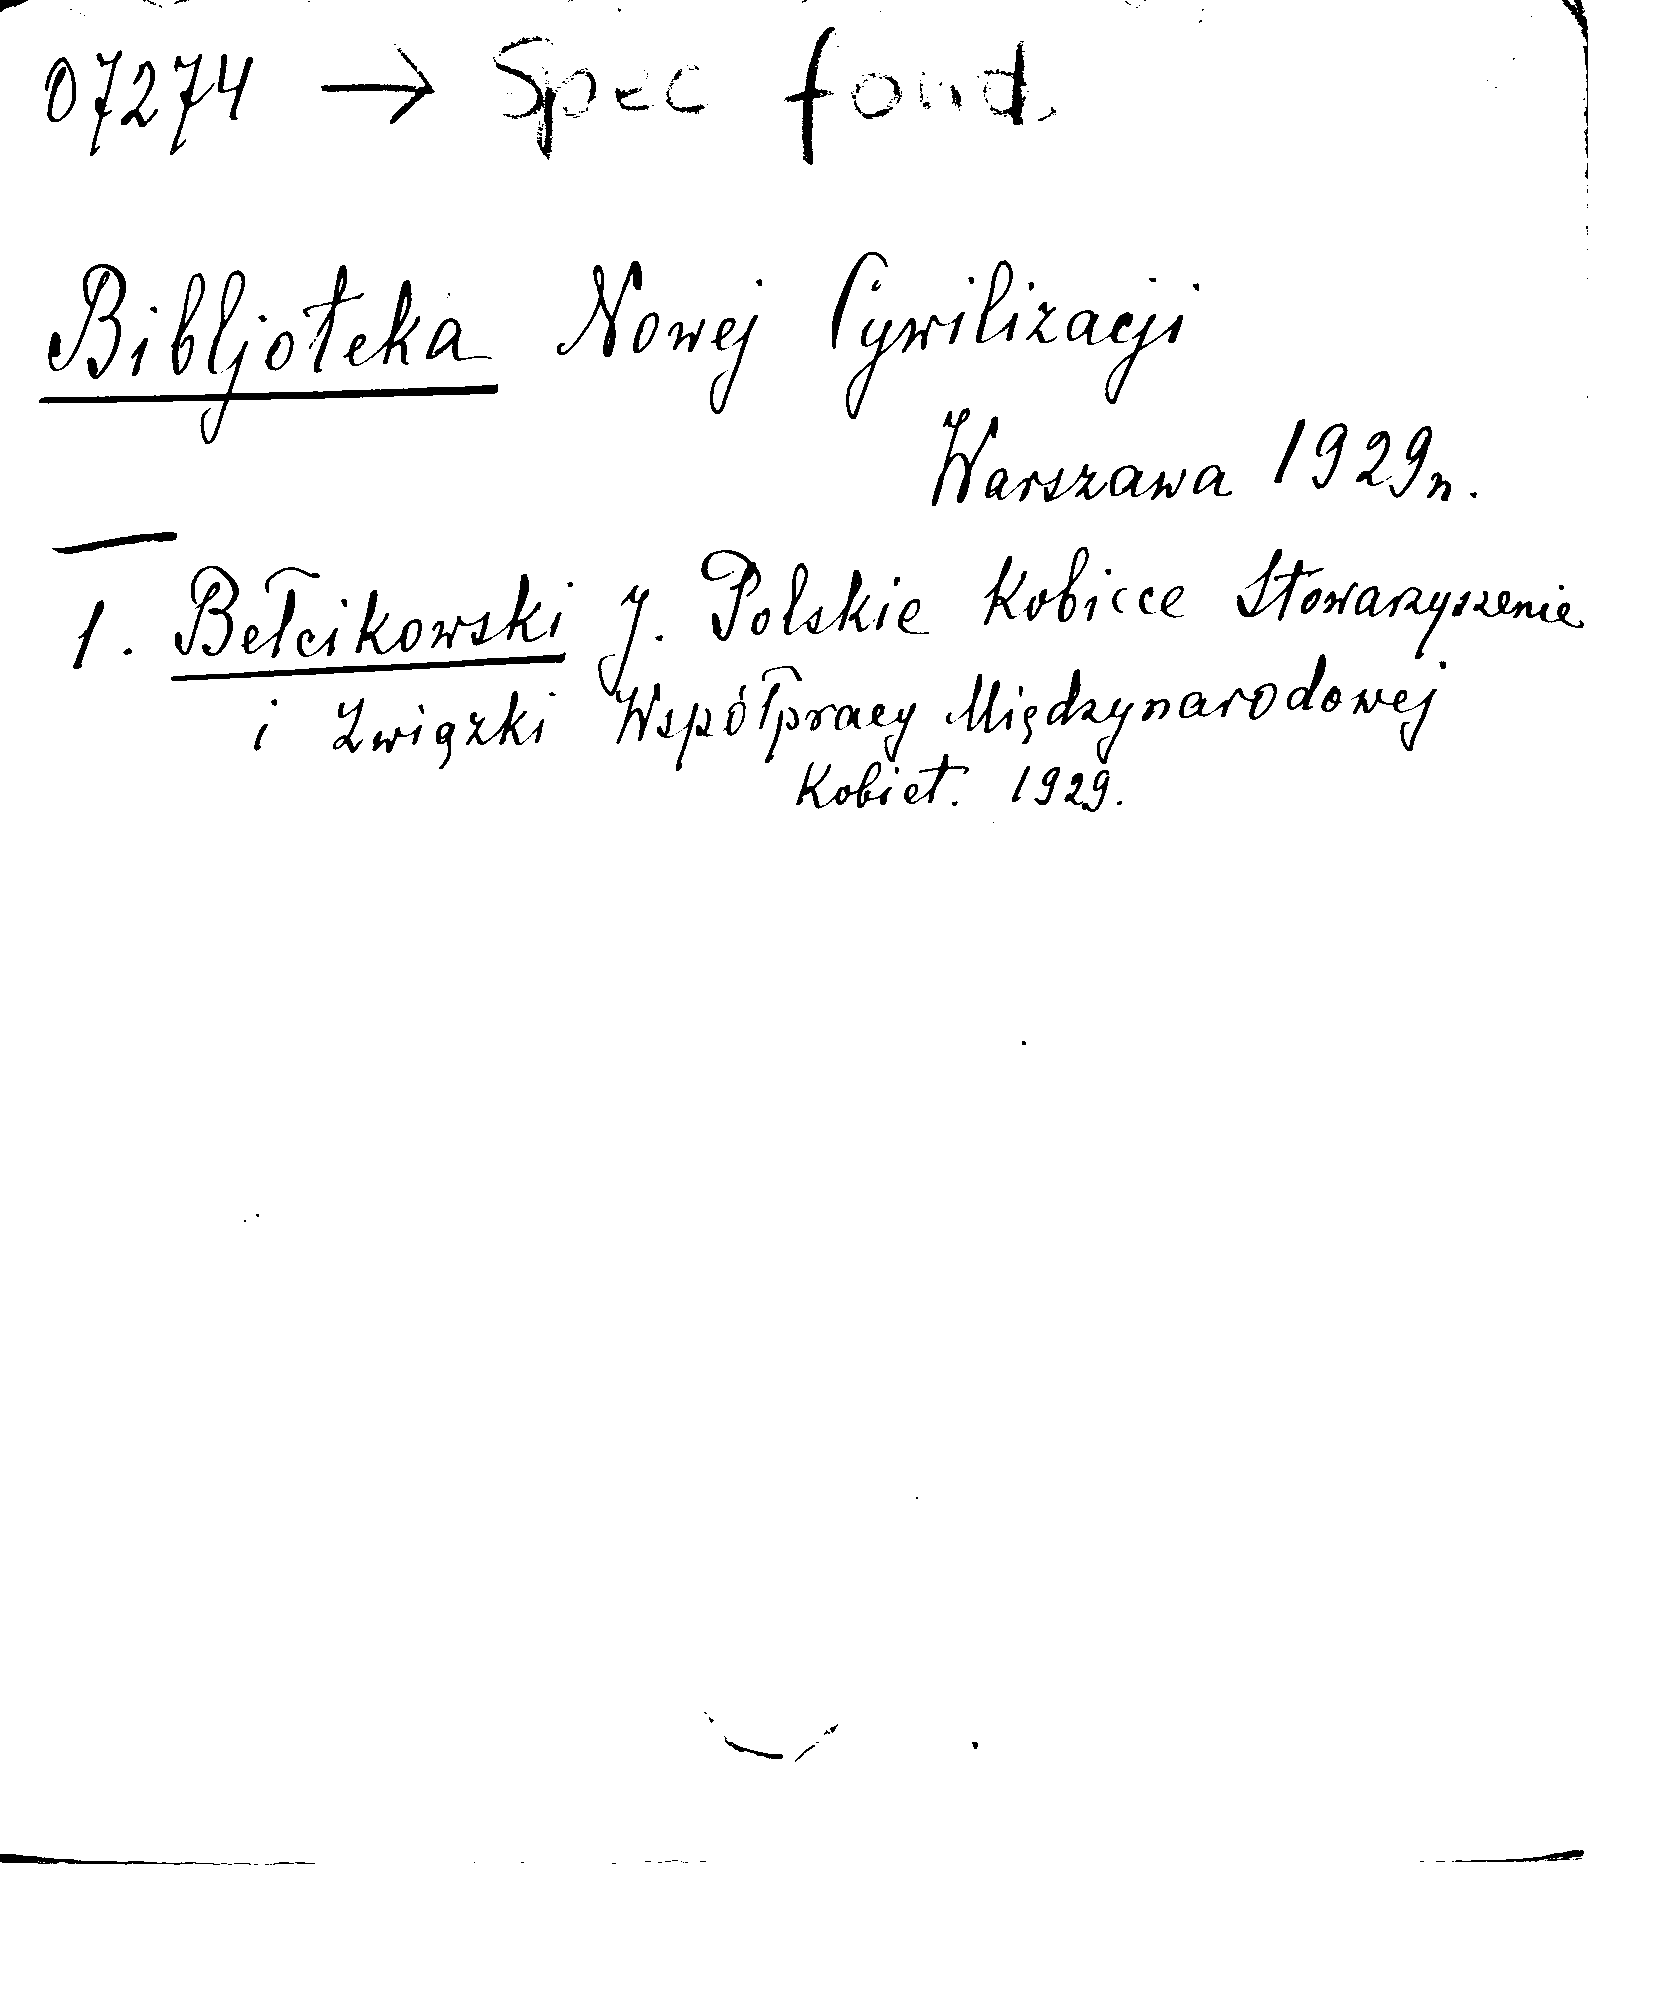 07274 → Spec fond.
Bibljoteka Nowej Cywilizacji
Warszawa 1929 r.
1. Bełcikowski J. Polskie Kobiece Stowarzyszenie
i Związki Współpracy Międzynarodowej
Kobiet. 1929.